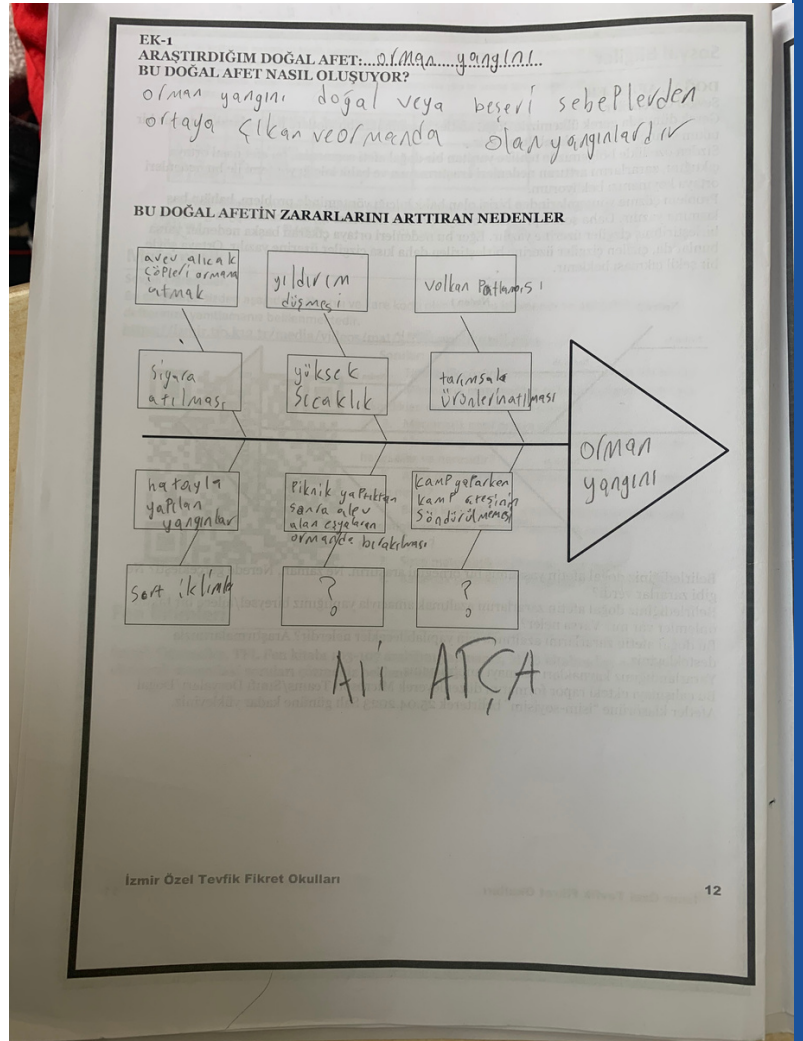 EK-1
ARAŞTIRDIĞIM DOĞAL AFET:...orman yangını...
BU DOĞAL AFET NASIL OLUŞUYOR?
orman yangını doğal veya beşeri sebeplerden
ortaya çıkan ve ormanda olan yangınlardır
BU DOĞAL AFETİN ZARARLARINI ARTTIRAN NEDENLER
alıcak
çöpleri ormana
atmak
yıldırım
düşmesi
volkan Patlaması
sigara
atılması
yüksek
sıcaklık
tarımsal
ürünlerin atılması
orman
yangını
hatayla
yapılan
yangınlar
Piknik yaptıktan
sonra alev
alan eşyaların
ormanda bırakılması
kamp yaparken
kamp ateşinin
söndürülmemesi
sert iklimle
?
?
Ali ATÇA
İzmir Özel Tevfik Fikret Okulları
12